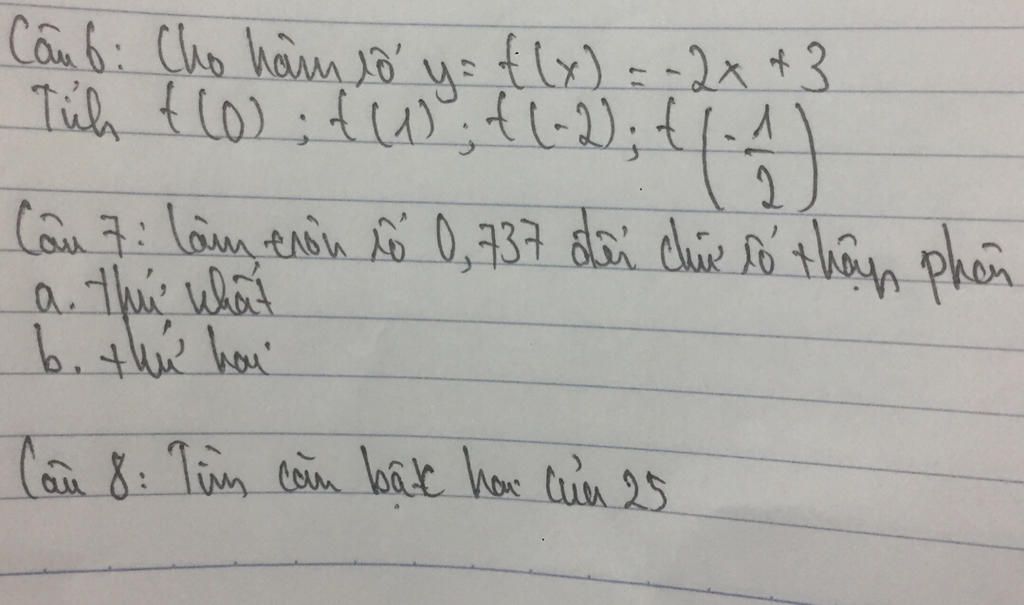 Câu 6: Cho hàm số y = f(x) = -2x + 3
Tính f(0); f(1); f(-2); f(-1/2)
Câu 7: làm tròn số 0,737 đến chữ số thập phân
a. thứ nhất
b. thứ hai
Câu 8: Tìm căn bậc hai của 25